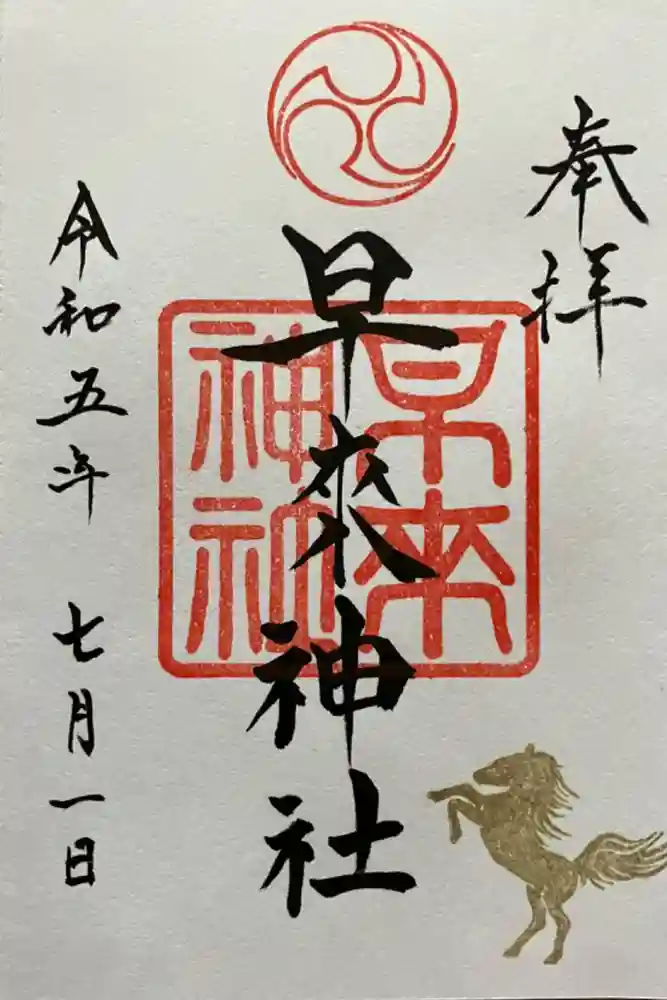 奉拝
早來神社
早来神社
令和五年 七月一日